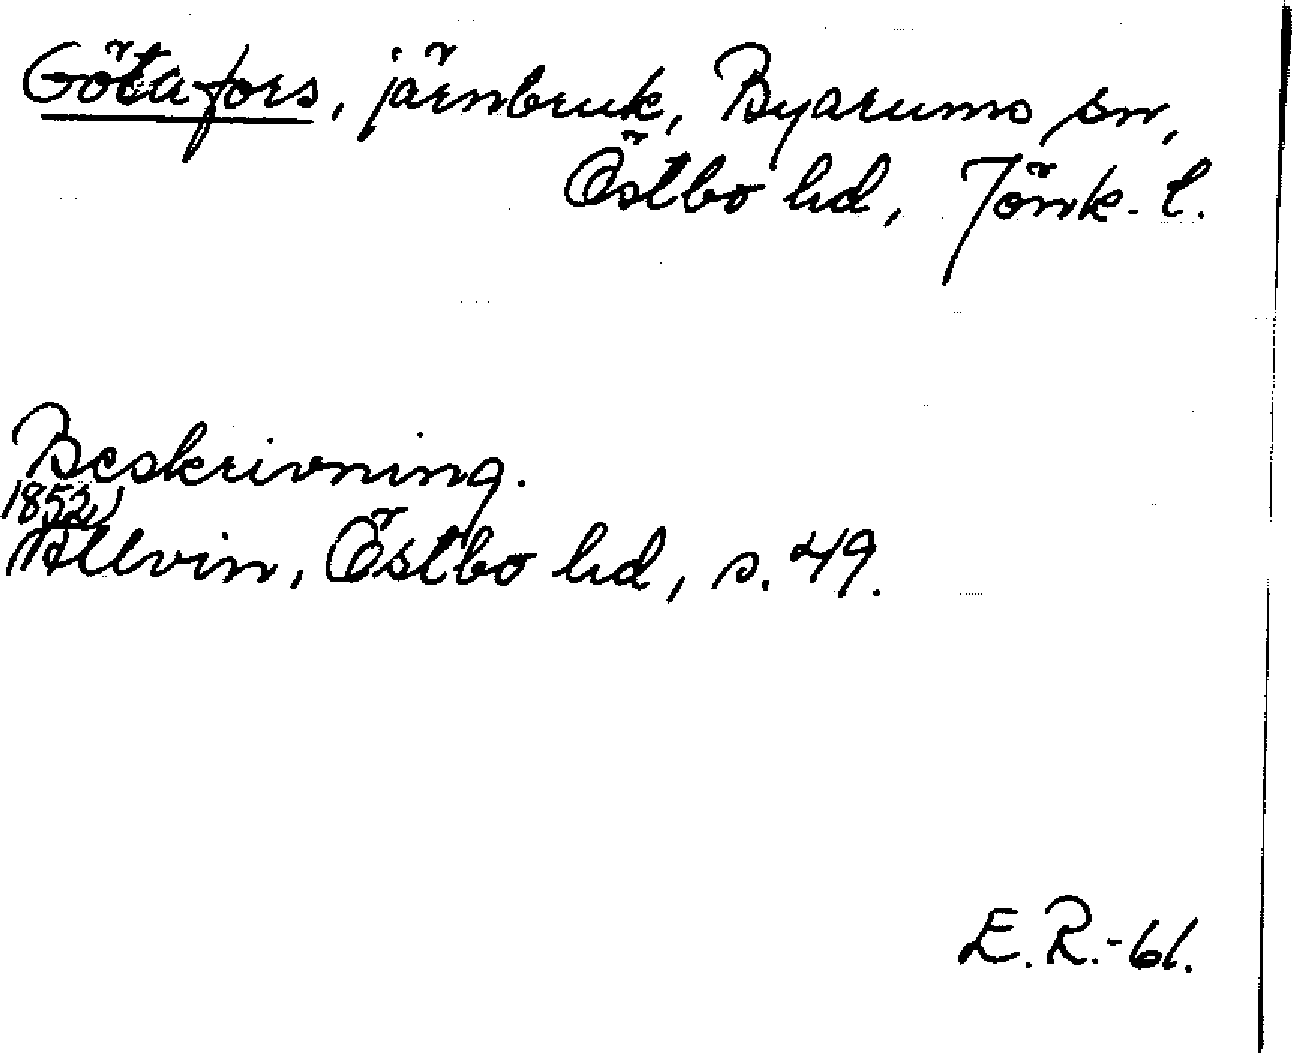 Götafors, järnbruk, Byarums sn,
Östbo hd, Jönk. l.
Beskrivning.
1852,
Allvin, Östbo hd, s. 49.
E. R. -61.